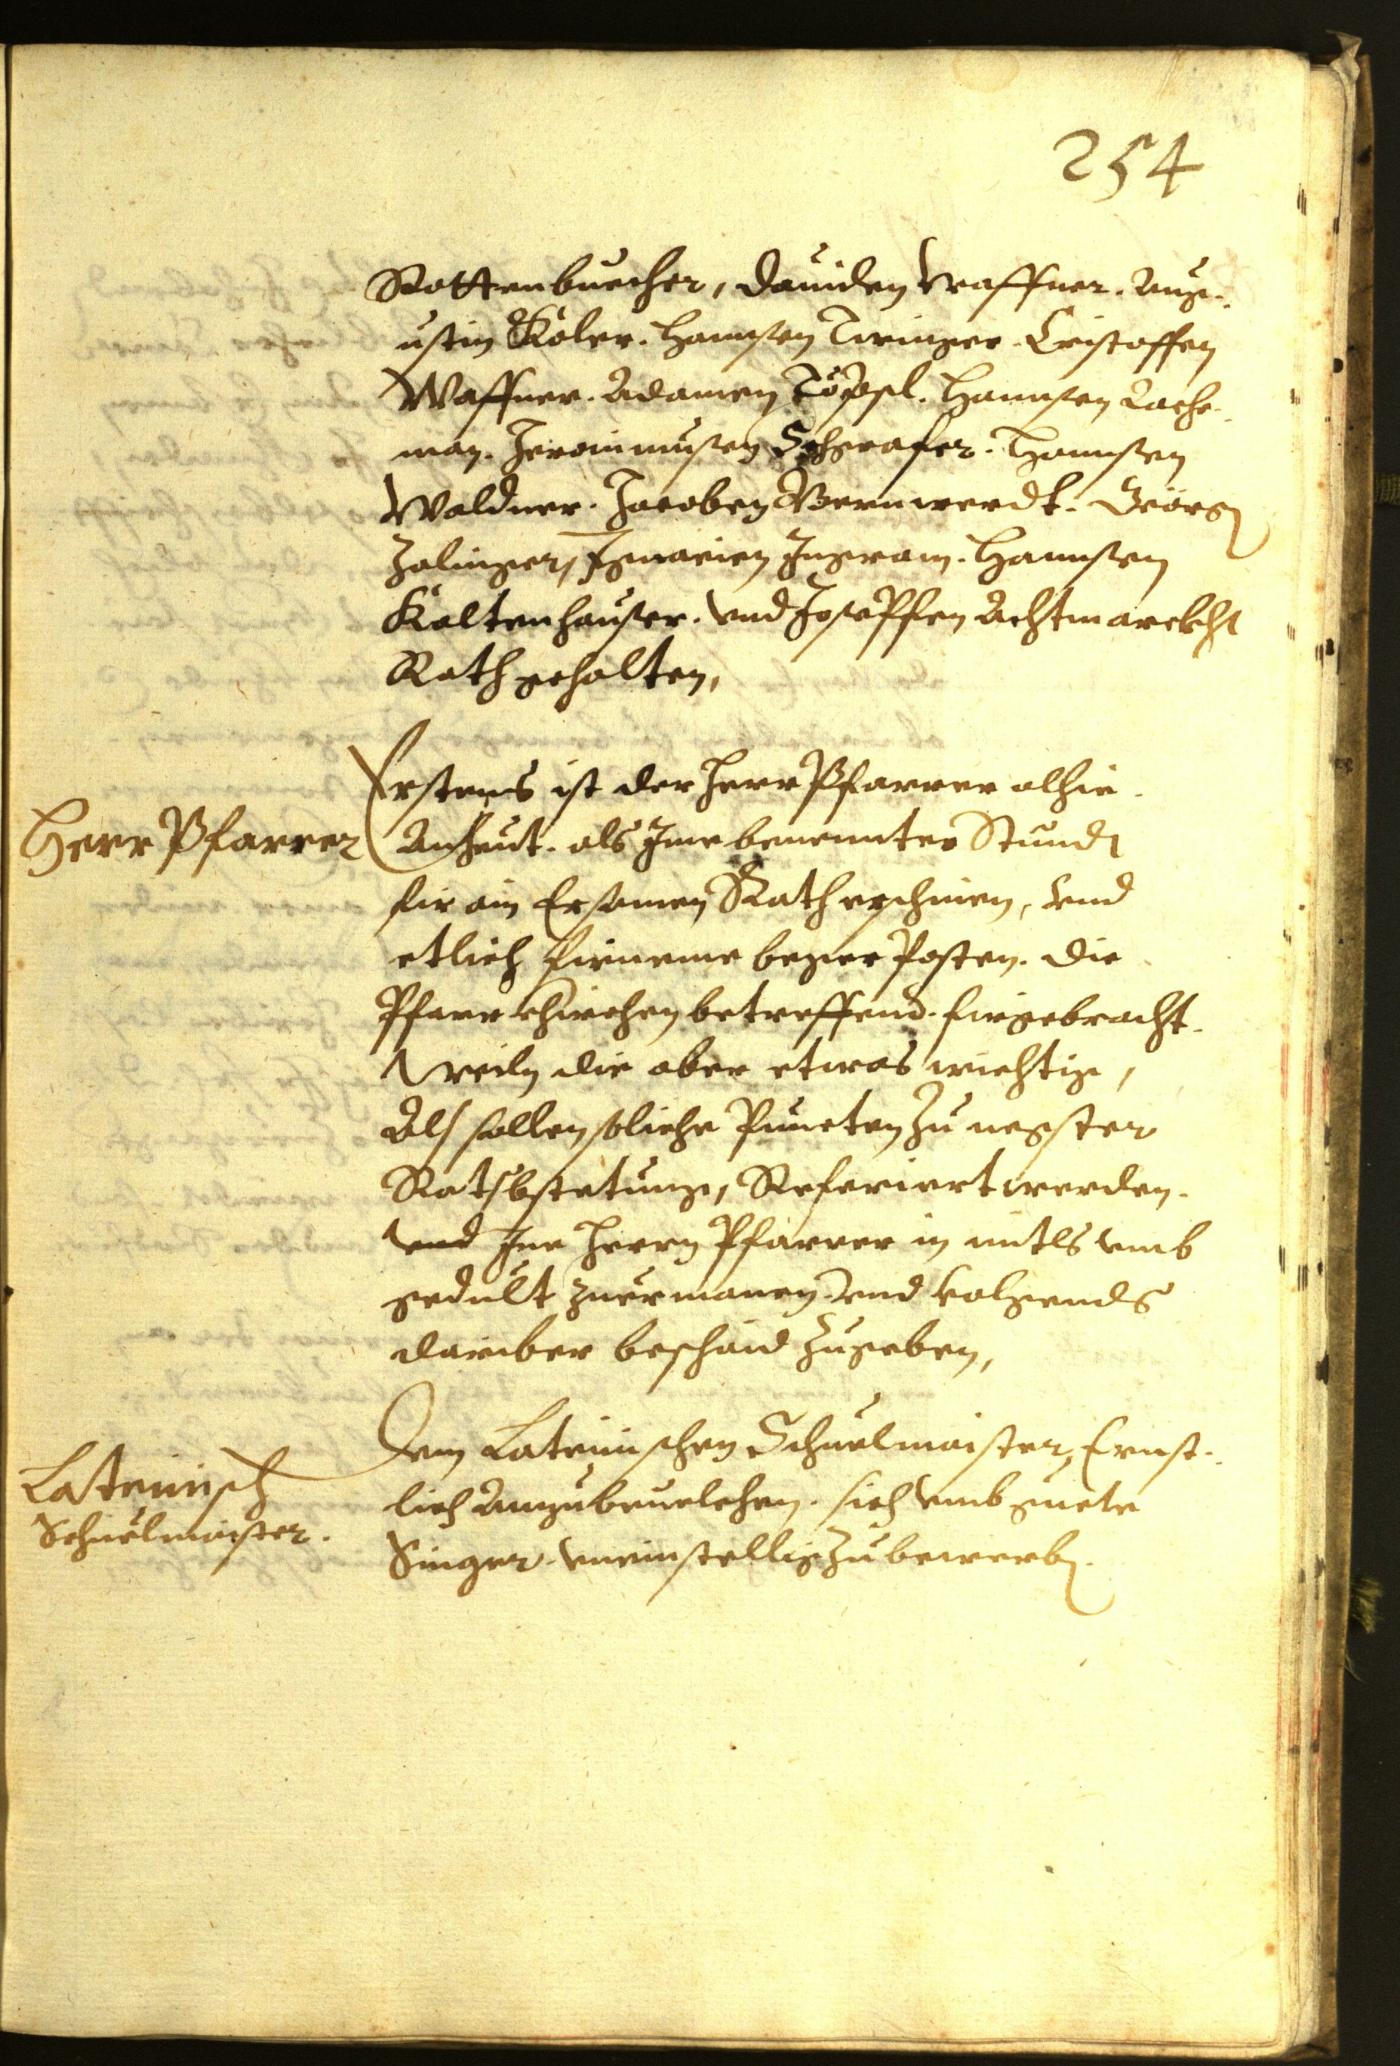 254
Rottenbuecher, Dauiden Waffner. Aug-
ustin Koler. Hannsen Tiringer. Cristoffen
Waffner. Adamen Töppl. Hannsen Lache-
man. Jeronimussen Schgrafer. Hannsen
Waldner. Jacoben Bernwerdt. Georg
Zalinger, Ingram. Hannsen
Kaltenhauser. vnd Joseffen Achtmarckht
Rath gehalten,
Herr Pfarrer
Erstens ist der Herr Pfarrer alhie.
Anheut. als Ime benennter Stundt
für ain Ersamen Rath erschinen, vnd
etlich firneme Posten. die
Pfarrkhirchen betreffend. firgebracht.
Weiln die aber etwas wichtig,
Als sollen soliche Puncten zu negster
Ratsbsetung, Referiert werden.
vnd Ine Herrn Pfarrer in mitls vmb
gedult zuermanen vnd volgends
dariber beschaid zugeben,
Lateinisch
Schuelmaister.
Dem Lateinischen Schuelmaister, Ernst-
lich Anzubeuelchen. sich vmb guete
Singer. vneinstellig zubewerben.